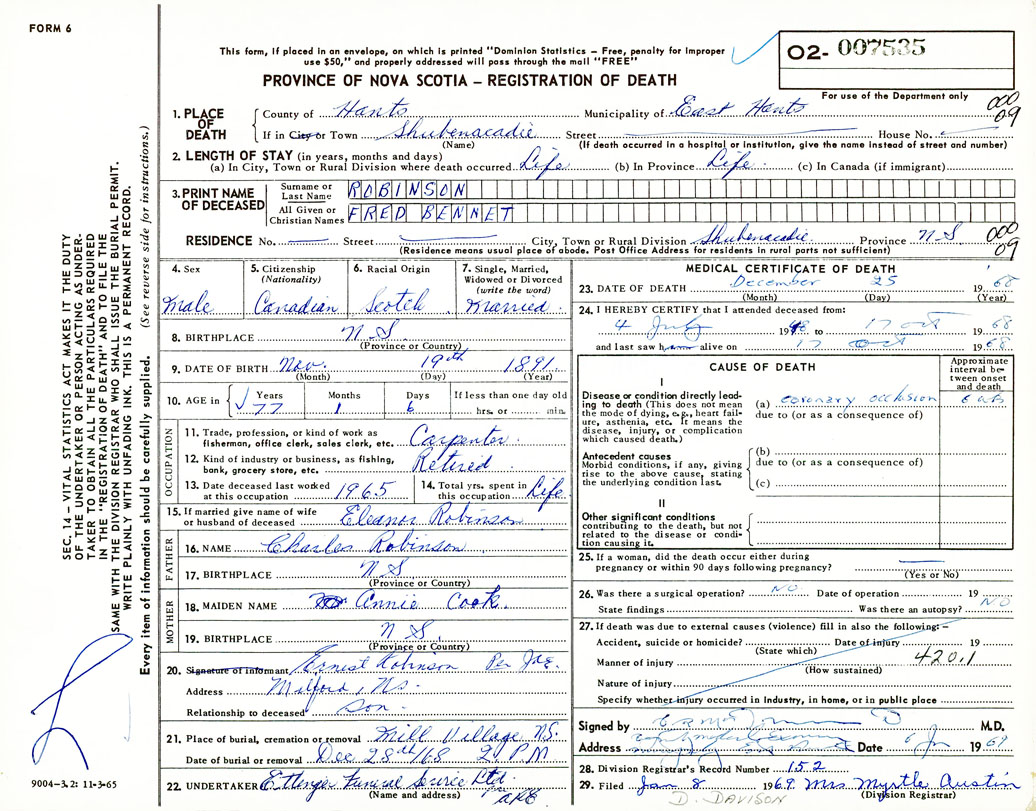 FORM 6
This form, if placed in an envelope, on which is printed "Dominion Statistics – Free, penalty for improper
use $50," and properly addressed will pass through the mail "FREE"
O2- 007535
For use of the Department only
PROVINCE OF NOVA SCOTIA – REGISTRATION OF DEATH
000
09
1. PLACE OF DEATH County of Hants Municipality of East Hants
If in City or Town Shubenacadie Street House No.
(Name) (If death occurred in a hospital or institution, give the name instead of street and number)
2. LENGTH OF STAY (in years, months and days)
(a) In City, Town or Rural Division where death occurred Life (b) In Province Life (c) In Canada (if immigrant)
3. PRINT NAME OF DECEASED
Surname or Last Name ROBINSON
All Given or Christian Names FRED BENNET
RESIDENCE No. Street City, Town or Rural Division Shubenacadie Province NS
(Residence means usual place of abode. Post Office Address for residents in rural parts not sufficient)
000
09
4. Sex
Male
5. Citizenship
(Nationality)
Canadian
6. Racial Origin
Scotch
7. Single, Married,
Widowed or Divorced
(write the word)
Married
8. BIRTHPLACE NS
(Province or Country)
9. DATE OF BIRTH Nov. 19th 1891
(Month) (Day) (Year)
10. AGE in Years Months Days If less than one day old
77 1 6 hrs. or min.
OCCUPATION
11. Trade, profession, or kind of work as
fisherman, office clerk, sales clerk, etc. Carpenter
12. Kind of industry or business, as fishing,
bank, grocery store, etc. Retired
13. Date deceased last worked
at this occupation 1965
14. Total yrs. spent in
this occupation Life
15. If married give name of wife
or husband of deceased Eleanor Robinson
FATHER
16. NAME Charles Robinson
17. BIRTHPLACE NS
(Province or Country)
MOTHER
18. MAIDEN NAME Annie Cook
19. BIRTHPLACE NS
(Province or Country)
20. Signature of informant Ernest Robinson Per
Address Milford, Ns
Relationship to deceased son
21. Place of burial, cremation or removal Mill Village NS.
Date of burial or removal Dec 28th/68 2 P.M
22. UNDERTAKER Ettinger Funeral Service Ltd
(Name and address)
MEDICAL CERTIFICATE OF DEATH
23. DATE OF DEATH December 25 1968
(Month) (Day) (Year)
24. I HEREBY CERTIFY that I attended deceased from:
4 July 19 to 17 Oct 1968
and last saw h alive on 17 Oct 1968
CAUSE OF DEATH
Approximate
interval be-
tween onset
and death
I
Disease or condition directly lead-
ing to death (This does not mean
the mode of dying, e.g., heart fail-
ure, asthenia, etc. It means the
disease, injury, or complication
which caused death.)
(a) coronary occlusion
due to (or as a consequence of)
Antecedent causes
Morbid conditions, if any, giving
rise to the above cause, stating
the underlying condition last.
(b)
due to (or as a consequence of)
(c)
II
Other significant conditions
contributing to the death, but not
related to the disease or condi-
tion causing it.
25. If a woman, did the death occur either during
pregnancy or within 90 days following pregnancy?
(Yes or No)
26. Was there a surgical operation? NO Date of operation 19
State findings Was there an autopsy? NO
27. If death was due to external causes (violence) fill in also the following:–
Accident, suicide or homicide? Date of injury 19
(State which)
Manner of injury 420.1
(How sustained)
Nature of injury
Specify whether injury occurred in Industry, in home, or in public place
Signed by M.D.
Address Date 6 Jan 1969
28. Division Registrar's Record Number 152
29. Filed Jan 8 1969 Mrs Myrtle Austin
(Division Registrar)
D. DAVISON
SEC. 14 – VITAL STATISTICS ACT MAKES IT THE DUTY
OF THE UNDERTAKER OR PERSON ACTING AS UNDER-
TAKER TO OBTAIN ALL THE PARTICULARS REQUIRED
IN THE "REGISTRATION OF DEATH" AND TO FILE THE
SAME WITH THE DIVISION REGISTRAR WHO SHALL ISSUE THE BURIAL PERMIT.
WRITE PLAINLY WITH UNFADING INK. THIS IS A PERMANENT RECORD.
Every item of information should be carefully supplied. (See reverse side for instructions.)
9004-3.2: 11-3-65